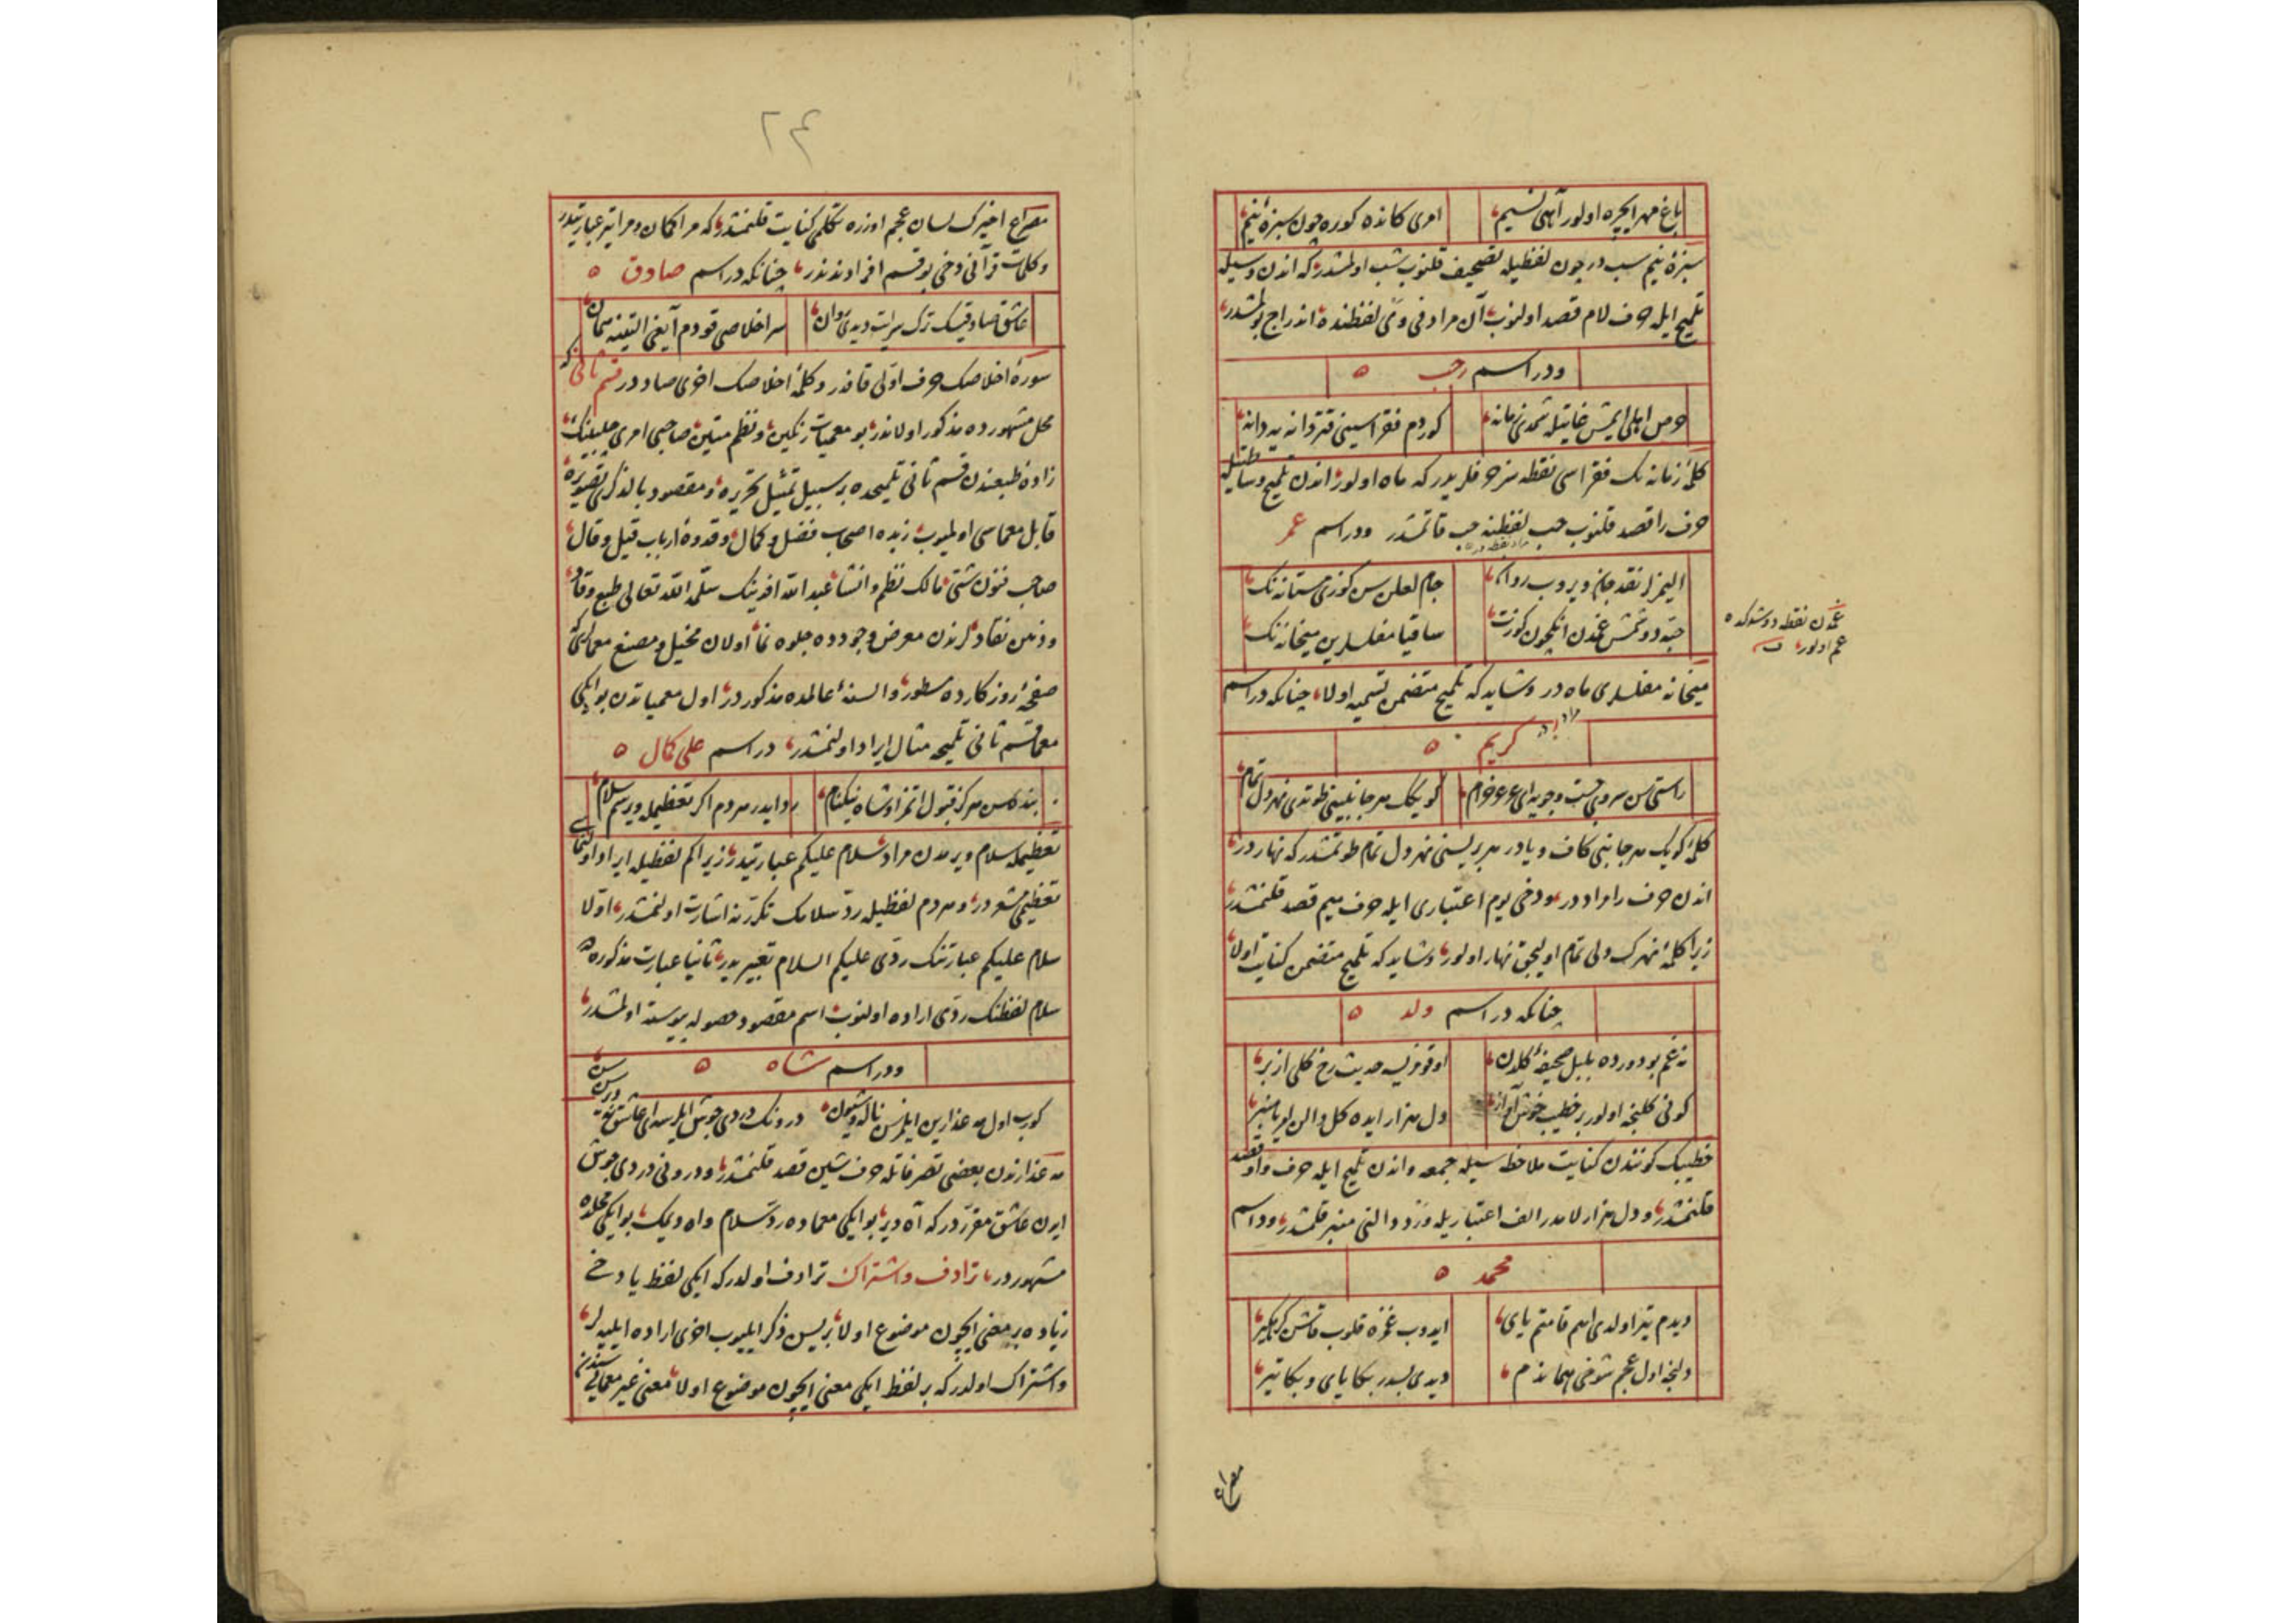 باغ مهر ایچره اولور آهی نسیم امری کانده کوره چون سبزهٔ نیم
سبزهٔ نیم سب در چون لفظیله تصحیف قلنوب شب اولمشدر که اندن وسیلهٔ
تلمیح ایله حرف لام قصد اولنوب آن مرادفی وی لفظنده اندراج بولمشدر
ودر اسم رجب
حرص اهلی ایمش شمدی زمانه کوردم فقراسینی دانه
کلمهٔ زمانه نک فقراسی نقطه سز حرفلریدر که ماه اولور اندن تلمیح وساطتیله
حرف را قصد قلنوب حب لفظنه جب قاتمشدر ودر اسم عمر
مراد نقطه در
الیمزله نقد جان ویروب روانه جام لعلن سن کوزی مستانه نک
حبه دوشمش غمدن انکچون کوزت ساقیا مفلسلرین میخانه نک
غمدن نقطه دوشوکده
عم اولور
میخانه مفلسلری ماه در وشاید که تلمیح متضمن تسمیه اولا چنانکه در اسم
کریم
راستی سن سروی جست وجویه ای خرام کویک هر جانبینی طوتدی نهر دل تمام
کلمهٔ کویک هر جانبی کاف و یادر هر بریسنی نهر دل تمام طوتمشدر که نهار در
اندن حرف را مراد در ودخی یوم اعتباری ایله حرف میم قصد قلنمشدر
زیرا کلمهٔ نهرک دلی تمام اولیجق نهار اولور وشاید که تلمیح متضمن کنایت اولا
چنانکه در اسم ولد
نه غم بو دورده بلبل صحیفهٔ کلدن اوقومزسه حدیث رخ کلی از بر
کونی کلنجه اولور بر خطیب خوش آواز دل هزار ایده کل دالن لربا منبر
خطیبک کونندن کنایت ملاحظه سیله جمعه واندن تلمیح ایله حرف واو قصد
قلنمشدر ودل هزار لام در الف اعتباریله ودالنی منبر قلمشدر ودر اسم
محمد
دیدم تیر اولدی اسم قامتم یای ایدوب غمزه قلوب قاشن
دلنجه اول عجم شوخی هماندم دیدی بسدر بکا یای وبکا تیر
مصراع
٢٤
مصراع اخیرک لسان عجم اوزره تکلمی کنایت قلنمشدر که مرا کمان ومرا تیر عبارتیدر
وکلمات قرآنی دخی بو قسم افرادندندر چنانکه در اسم صادق
عاشق صادقیسک ترک سرایت دیدی روان سر اخلاصی قودم آیغی التینه همان
سورهٔ اخلاصک حرف اولی قافدر وکلمهٔ اخلاصک اخری صاد در قسم ثانی که
محل مشهورده مذکور اولاندر بو معمیات رنکین ونظم متین صاحبی امری چلبینک
زادهٔ طبعندن قسم ثانی تلمیحده بر سبیل تمثیل تحریره ومقصود بالذکری تصویره
قابل معماسی اولمیوب زبدهٔ اصحاب فضل وکمال وقدوهٔ ارباب قیل وقال
صاحب فنون شتی مالک نظم وانشا عبد الله افندینک سلمه الله تعالی طبع وقاد
وذهن نقادلرندن معرض وجودده جلوه نما اولان مخیل ومصنع معمالری که
صفحهٔ روزکارده مسطور والسنهٔ عالمده مذکور در اول معمیاتدن بو ایکی
معما قسم ثانی تلمیحه مثال ایراد اولنمشدر در اسم علی کمال
بنده سن هرکز قبول اتمز اوشاه نیکنام دوایدر مردم اکر تعظیمله ویرسم سلام
تعظیمله سلام ویرمدن مراد سلام علیکم عبارتیدر زیرا کم لفظیله ایراد اولنماسی
تعظیمی مشعر در ومردم لفظیله رد سلامک تکررینه اشارت اولنمشدر اولا
سلام علیکم عبارتنک ردی علیکم السلام تعبیریدر ثانیا عبارت مذکوره ده
سلام لفظنک ردی اراده اولنوب اسم مقصود حصوله پیوسته اولمشدر
ودر اسم شاه
کورب اول مه عذارین ایلرسن ناله وشیون درونک دردی جوش ایلرسه ای عاشق نه دیرسن سن
مه عذارندن بعضی تصرفاتله حرف شین قصد قلنمشدر ودرونی دردی جوش
ایدن عاشق مقرردر که آه دیر بو ایکی معماده رد سلام واه دیمک بو ایکی محلده
مشهور در ترادف واشتراک ترادف اولدر که ایکی لفظ یا دخی
زیاده بر معنی ایچون موضوع اولا بریسن ذکر ایلیوب اخری اراده ایلیه لر
واشتراک اولدر که بر لفظ ایکی معنی ایچون موضوع اولا معنی غیر معمائیسندن